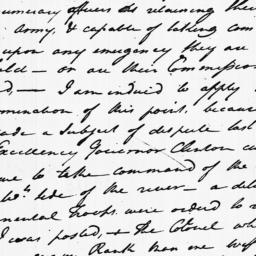 officers as retaining their
Army, & capable of taking com
upon any emergency they are
ld — or are their Commission
d, — I am induced to apply
mination of this point, because
ade a Subject of dispute last
Excellency Governor Clinton
me to take command of the
side of the river — a de
mental Troops were ordered to
I was posted, & the Colonel who
Rank than one